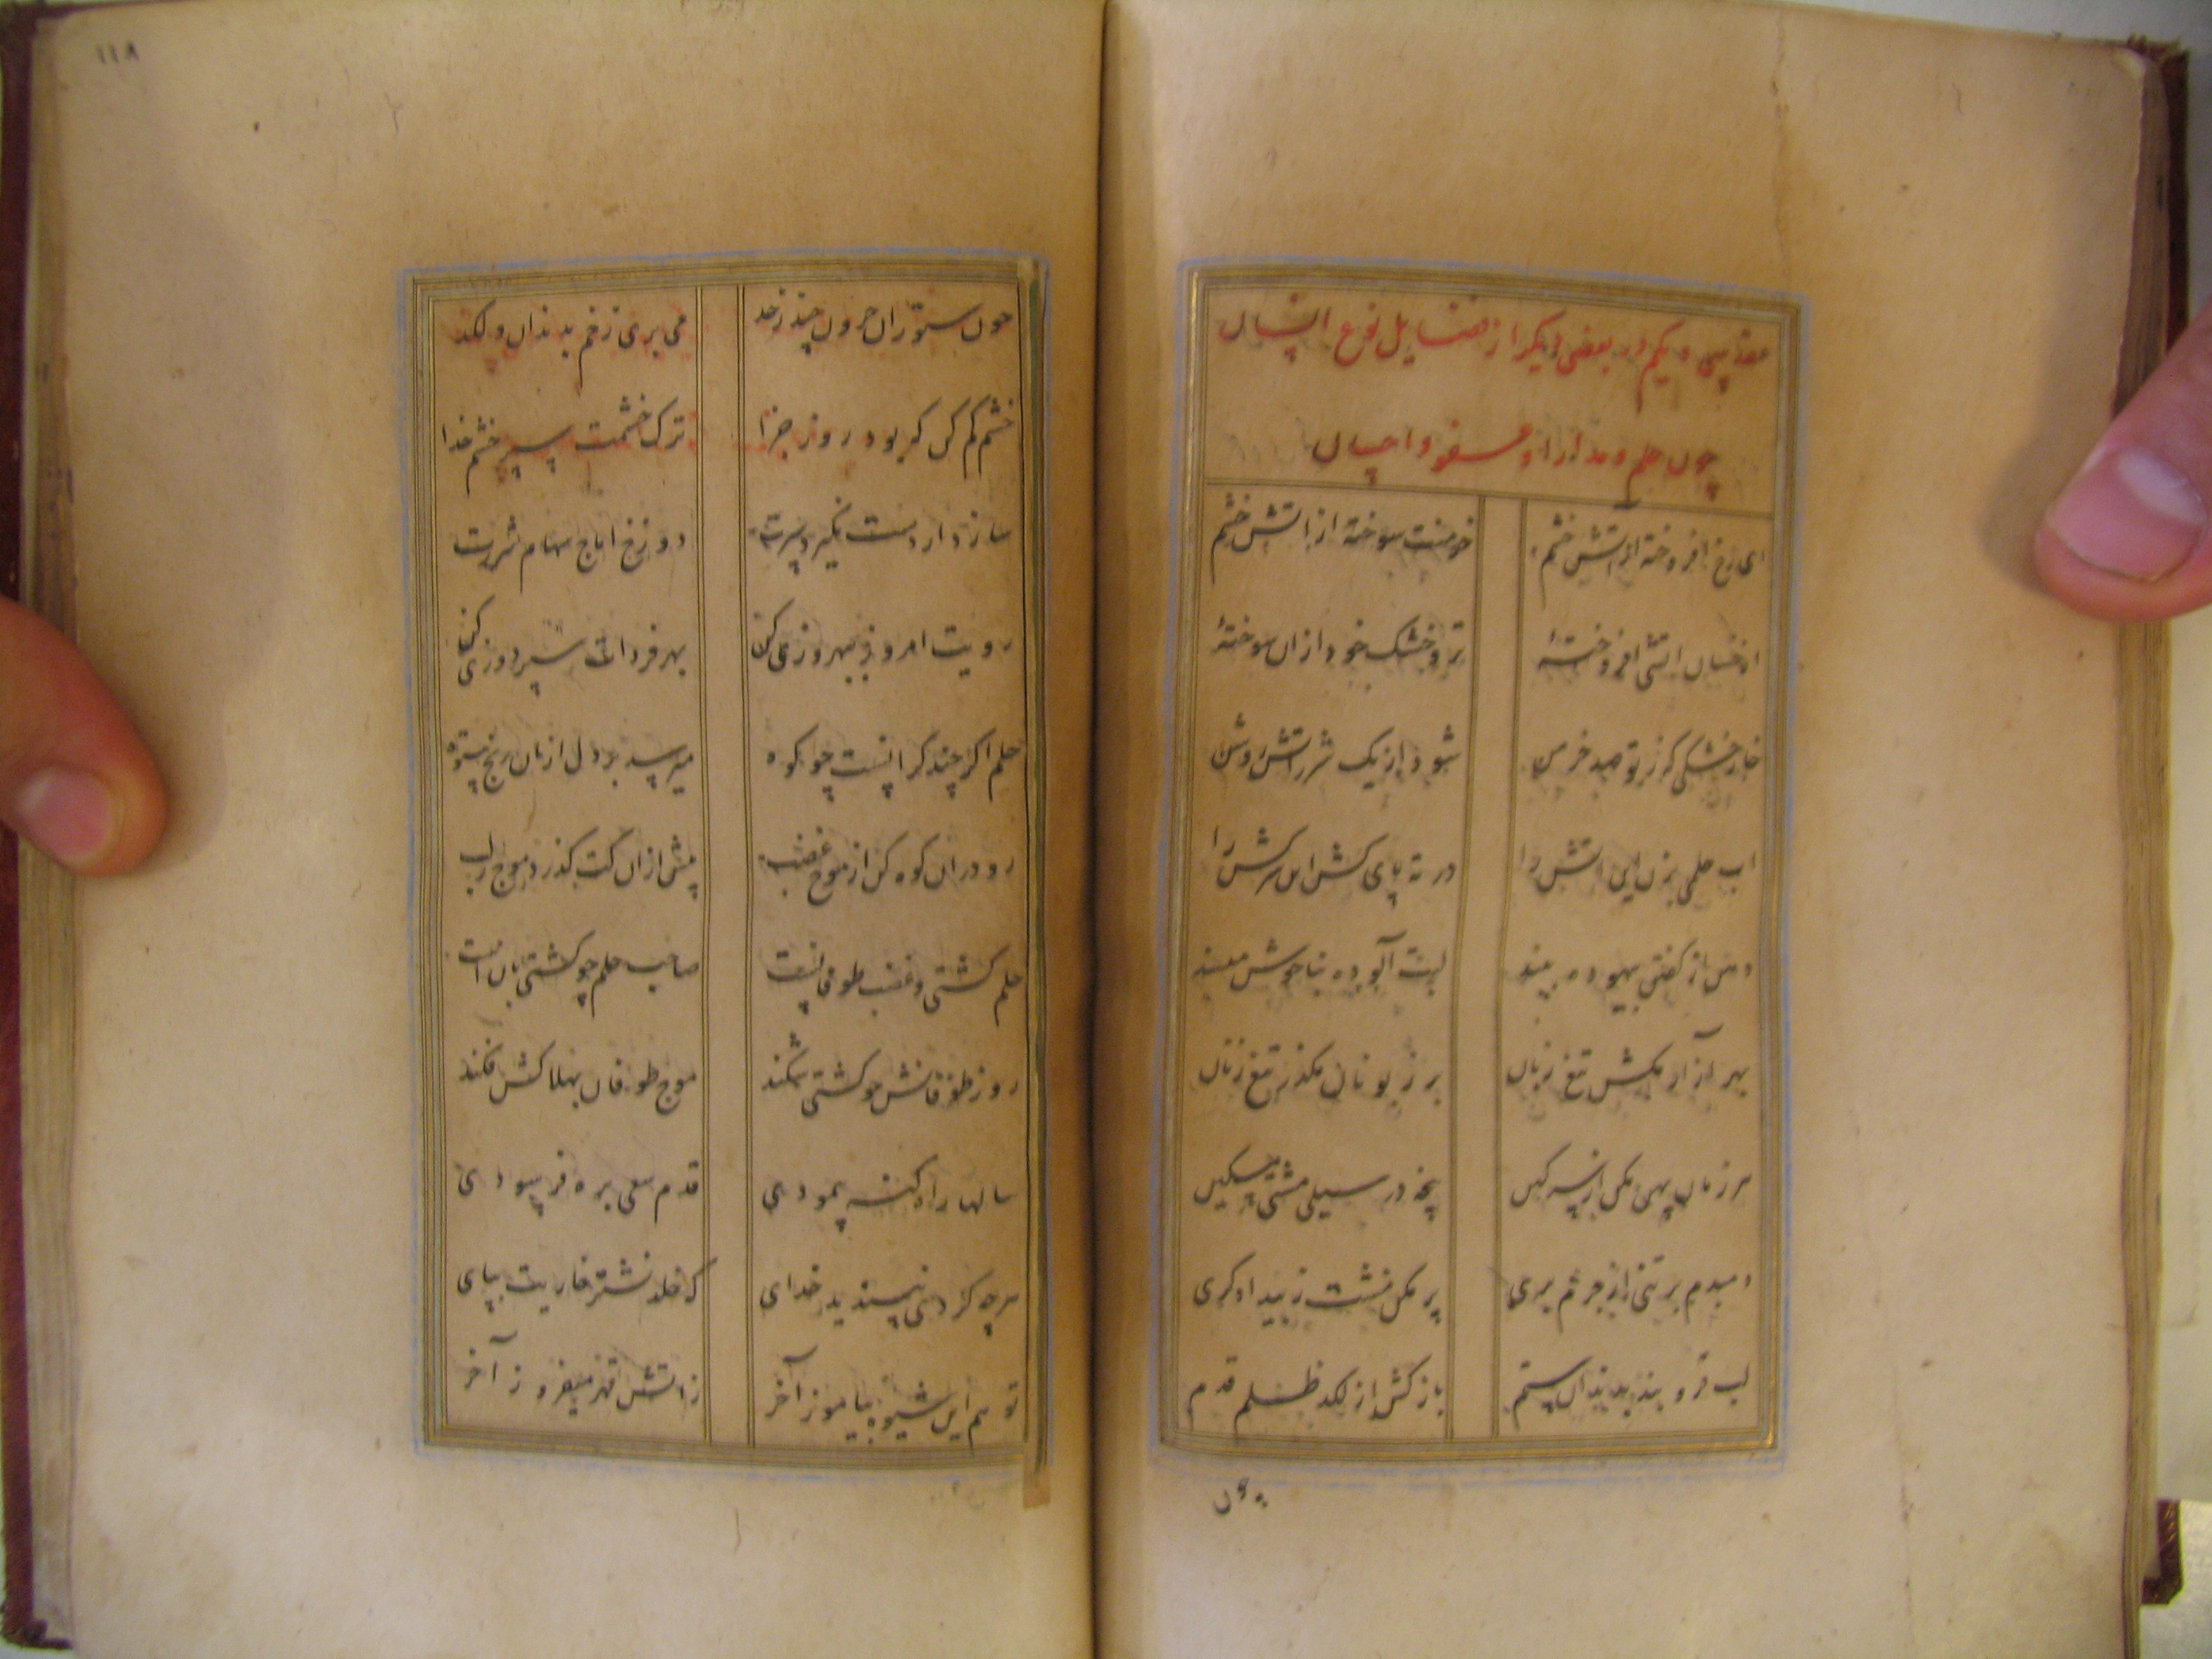 عقد سی و یکم در بعضی دیگر از فضایل نوع انسان
چون حلم و مدارا و عفو و احسان
ای رخ افروخته از آتش خشم خرمنت سوخته از آتش خشم
آتشی افروخته تر و خشک خود از آن سوخته
خار خشکی که ز تو صد خرمن شود از یک شرر آتش روشن
آب حلمی بزن این آتش را در ته پای کش این سرکش را
دهن از گفتن بیهوده ببند لبت آلوده بناخوش مپسند
بهر آزار مکش تیغ زبان بر زبونان مگذر تیغ زنان
هر زمان پهن مکن از سر کین پنجه در سیلی مشتی مسکین
دمبدم بر تنی از جرم بری پر مکن مشت ز بیدادگری
لب فرو بند بدندان ستم بازکش از لگد ظلم قدم
چون
۱۱۸
چون ستوران حرون چند ز خد می بری زخم بدندان و لگد
خشم کم کن که بود روز جزا ترک خشمت سپر خشم خدا
ساز دار دست نگیرد سپرت دوزخ آماج سهام شررت
رویت امروز ببهروزی کن بهر فردات سپردوزی کن
حلم اگر چند گرانست چو کوه میرسد بر دل از آن رنج ستوه
رو در آن کوه کن از موج غضب پیش از آن کت گذرد موج ز لب
حلم کشتی و غضب طوفانست صاحب حلم چو کشتی بانست
روز طوفانش چو کشتی شکند موج طوفان بهلاکش فکند
سالها راه گنه پیمودی قدم سعی بره فرسودی
هرچه کردی نپسندید خدای که خلد نشتر خاریت بپای
تو هم این شیوه بیاموز آخر ز آتش قهر میفروز آخر